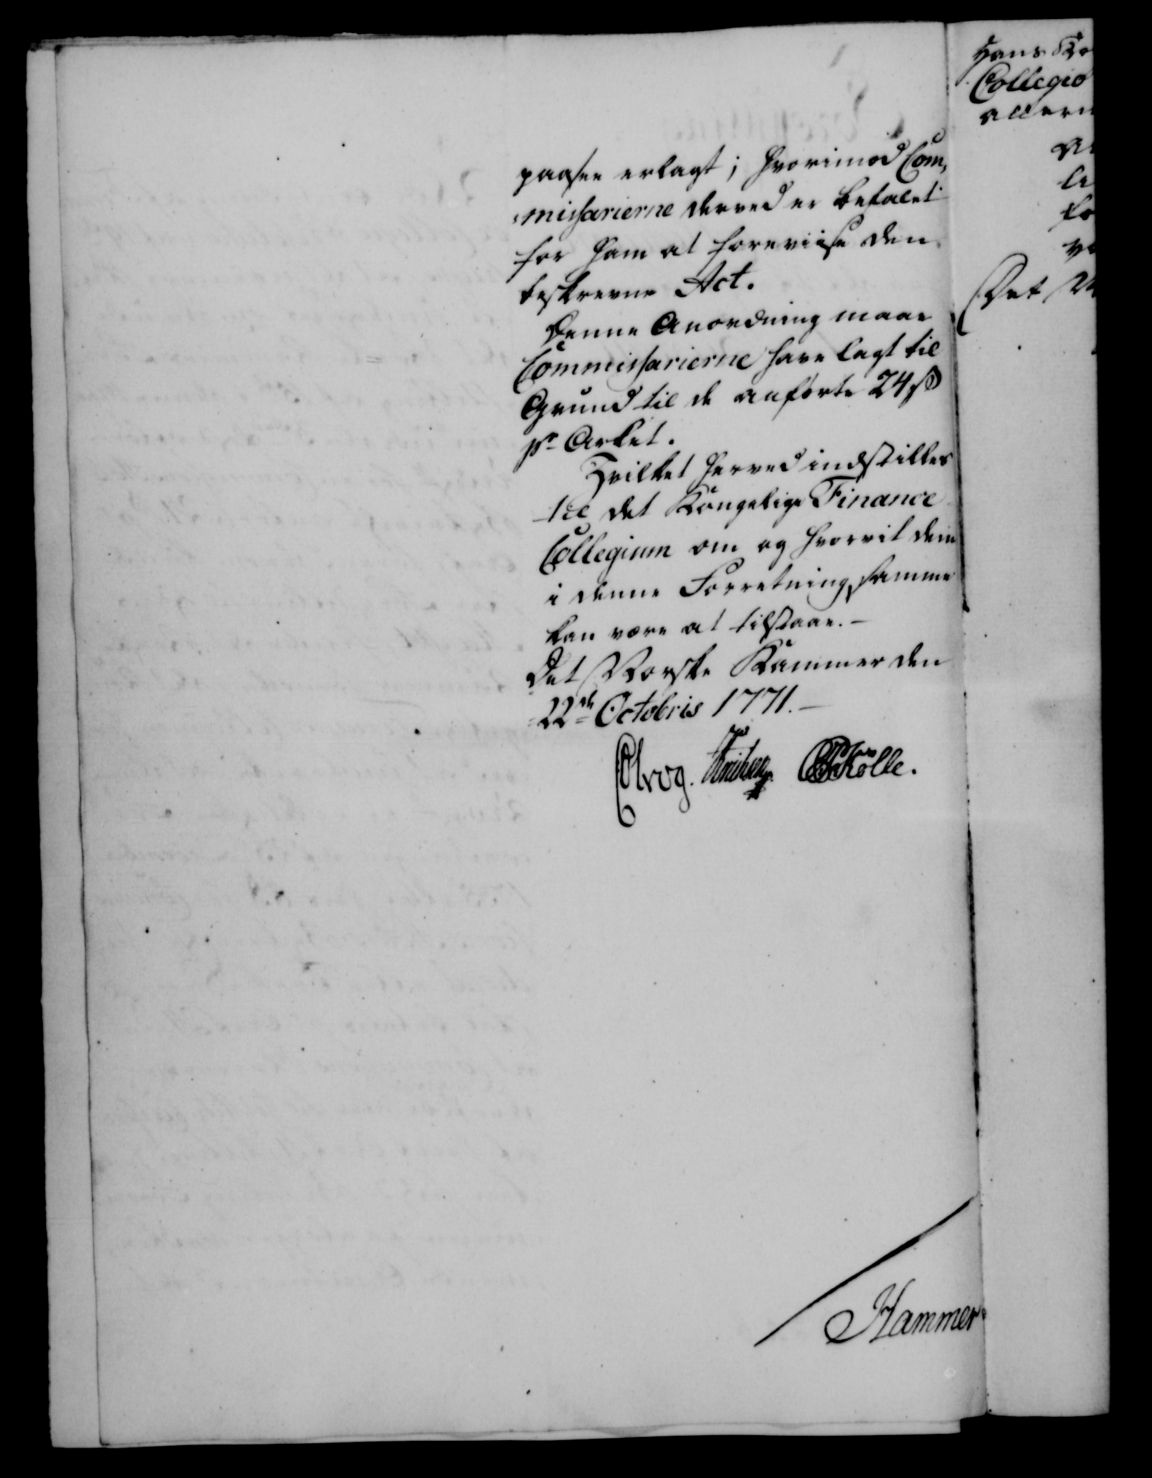 paasee erlagt; hvorimod Com,
missarierne derved er befalet
for ham at foreviise den
beskrevne Act.
Denne Anordning maae
Commissarierne have lagt til
Grund til de anførte 24 ß
pr Arket.
Hvilket herved indstilles
til det Kongelige Finance
Collegium om og hvorvit dem
i denne Forretning samme
kan være at tilstaae. –
Det Norske Kammer den
22de Octobris 1771. –
Hammer
Hans Ko
Collegio
allern
Det N